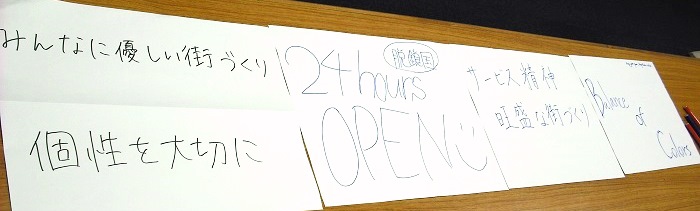 みんなに優しい街づくり
個性を大切に
脱鎖国
24 hours
OPEN
サービス精神
旺盛な街づくり
Balance
of
Colors